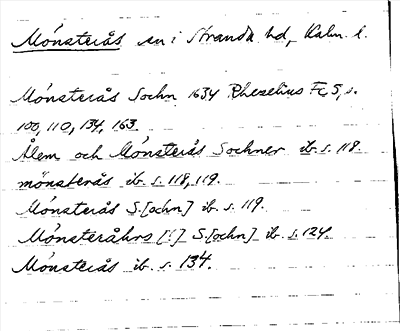 Mónsterås sn i Stranda hd, Kalm. l.
Mónsterås Sochn 1634 Rhezelius Fc 5, s.
100, 110, 134, 163.
Ålem och Mónsterås Sochner ib. s. 118.
mónsterås ib. s. 118, 119.
Mónsterås S.[ochn] ib. s. 119.
Mónsteråhrs [!] S.[ochn] ib. s. 124.
Mónsterås ib. s. 134.